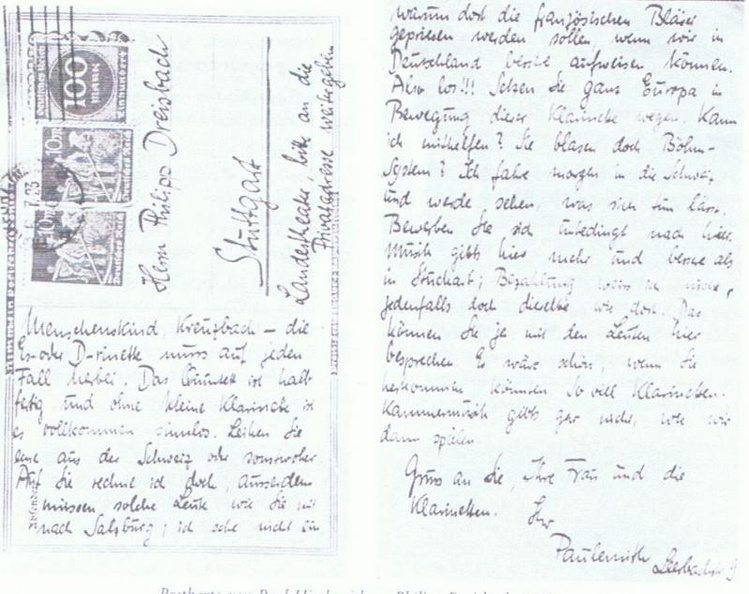 100
MARK
7.23
Herrn Philipp Dreisbach
Stuttgart
Landestheater, bitte an die
Privatadresse weitergeben
Menschenskind, Kreuzbach – die
Es- oder D-rinette muss auf jeden
Fall herbei. Das Quintett ist halb
fertig und ohne kleine Klarinette ist
es vollkommen sinnlos. Leihen Sie
eine aus der Schweiz oder sonstwoher
Auf Sie rechne ich doch, ausserdem
müssen solche Leute wie Sie mit
nach Salzburg; ich sehe nicht ein
Absender
warum dort die französischen Bläser
gepriesen werden sollen, wenn wir in
Deutschland bessere aufweisen können.
Also los!!! Setzen Sie ganz Europa in
Bewegung dieser Klarinette wegen. Kann
ich mithelfen? Sie blasen doch Böhm-
System? Ich fahre morgen in die Schweiz
und werde sehen, was sich tun lässt.
Bewerben Sie sich unbedingt nach hier.
Musik gibts hier mehr und bessere als
in Stuckart; Bezahlung weiss ich nicht,
jedenfalls doch dieselbe wie dort. Das
können Sie ja mit den Leuten hier
besprechen Es wäre schön, wenn Sie
herkommen könnten so viel Klarinetten-
Kammermusik gibts gar nicht, wie wir
dann spielen
Gruss an Sie, Ihre Frau und die
Klarinetten. Ihr
Paulemith
Postkarte von Paul Hindemith an Philipp Dreisbach